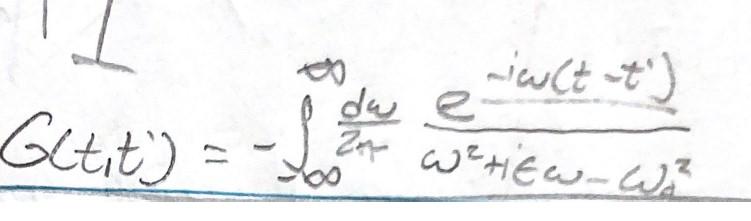 G(t,t') = -∫_{-∞}^{∞} \frac{dω}{2π} \frac{e^{-iω(t-t')}}{ω²+iϵω-ω₀²}